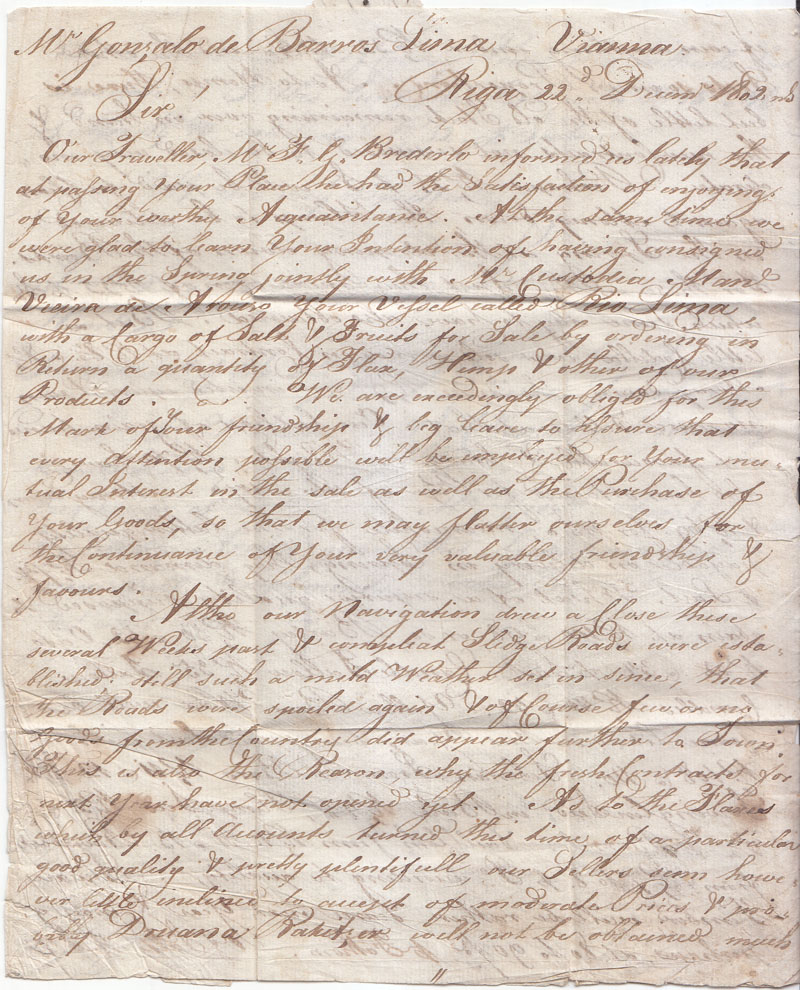 Mr Gonzalo de Barros Lima Vianna
Riga 22d Decmr 1802 ns
Sir
Our Traveller, Mr F. G. Brederlo informed us lately that
at passing Your Place he had the Satisfaction of enjoying
of Your worthy Acquaintance. At the same time we
were glad to learn Your Intention of having consigned
us in the Spring jointly with Mr Custodia Manl
Vieira de Aroujo Your Vessel called Rio Lima
with a Cargo of Salt & Fruits for Sale by ordering in
Return a quantity of Flax, Hemp & other of our
Products. We are exceedingly obliged for this
Mark of Your friendship & beg leave to assure that
every attention possible will be employed for Your mu-
tual Interest in the sale as well as the Purchase of
Your Goods, so that we may flatter ourselves for
the Continuance of Your very valuable friendship &
favours.
Altho' our Navigation drew a Close these
several Weeks past & compleat Sledge Roads were esta-
blished; still such a mild Weather set in since, that
the Roads were spoiled again & of Course few or no
Goods from the Country did appear further to Town.
This is also the Reason why the fresh Contracts for
next Year have not opened yet. As to the Flaxes
which by all Accounts turned this time of a particular
good quality & pretty plentifull, our Sellers seem howe-
ver little inclined to accept of moderate Prices & pro-
bably Druana Rakitzer will not be obtained much
"